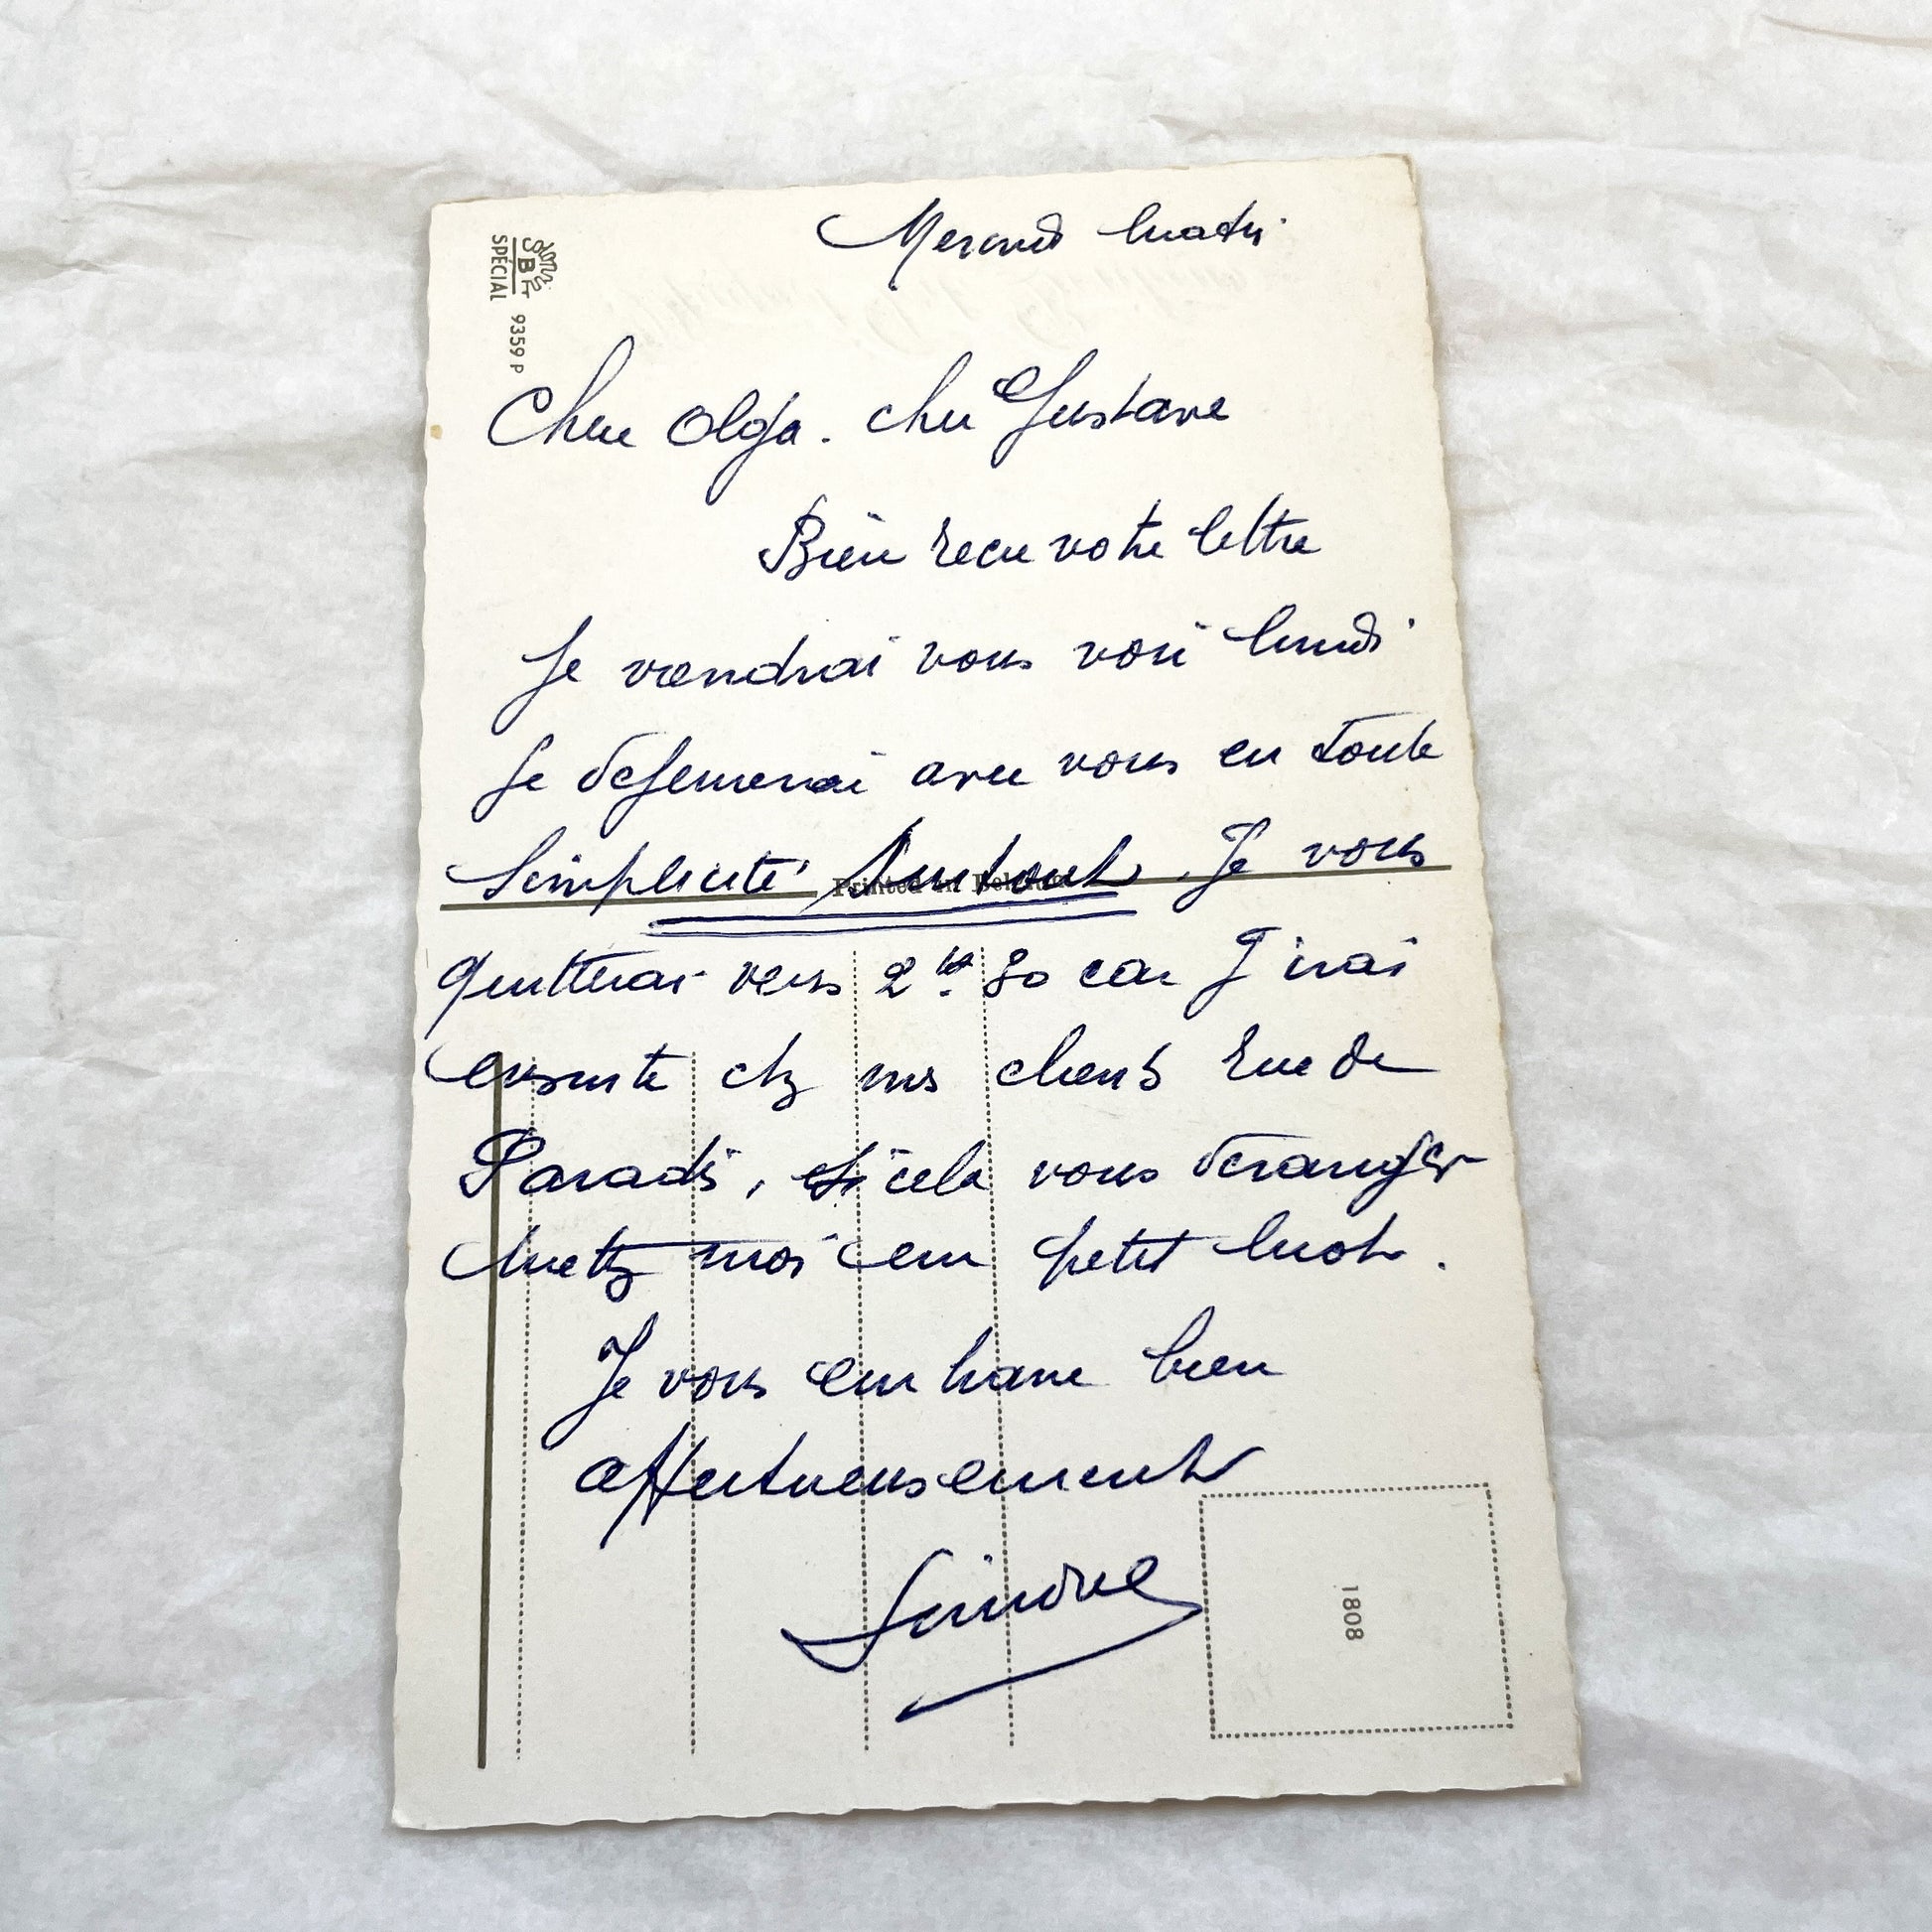 Mercredi matin
Chere Olga. cher Gustave
Bien recu votre lettre
Je viendrai vous voir lundi
Je dejeunerai avec vous en toute
Simplicité Surtout. Je vous
quitterai vers 2 hs 30 car J'irai
ensuite chz mes clients rue de
Paradis, si cela vous derange
mettz moi un petit mot.
Je vous embrasse bien
affectueusement
Simone
SBF
SPECIAL 9359 P
Printed in Belgium
1808